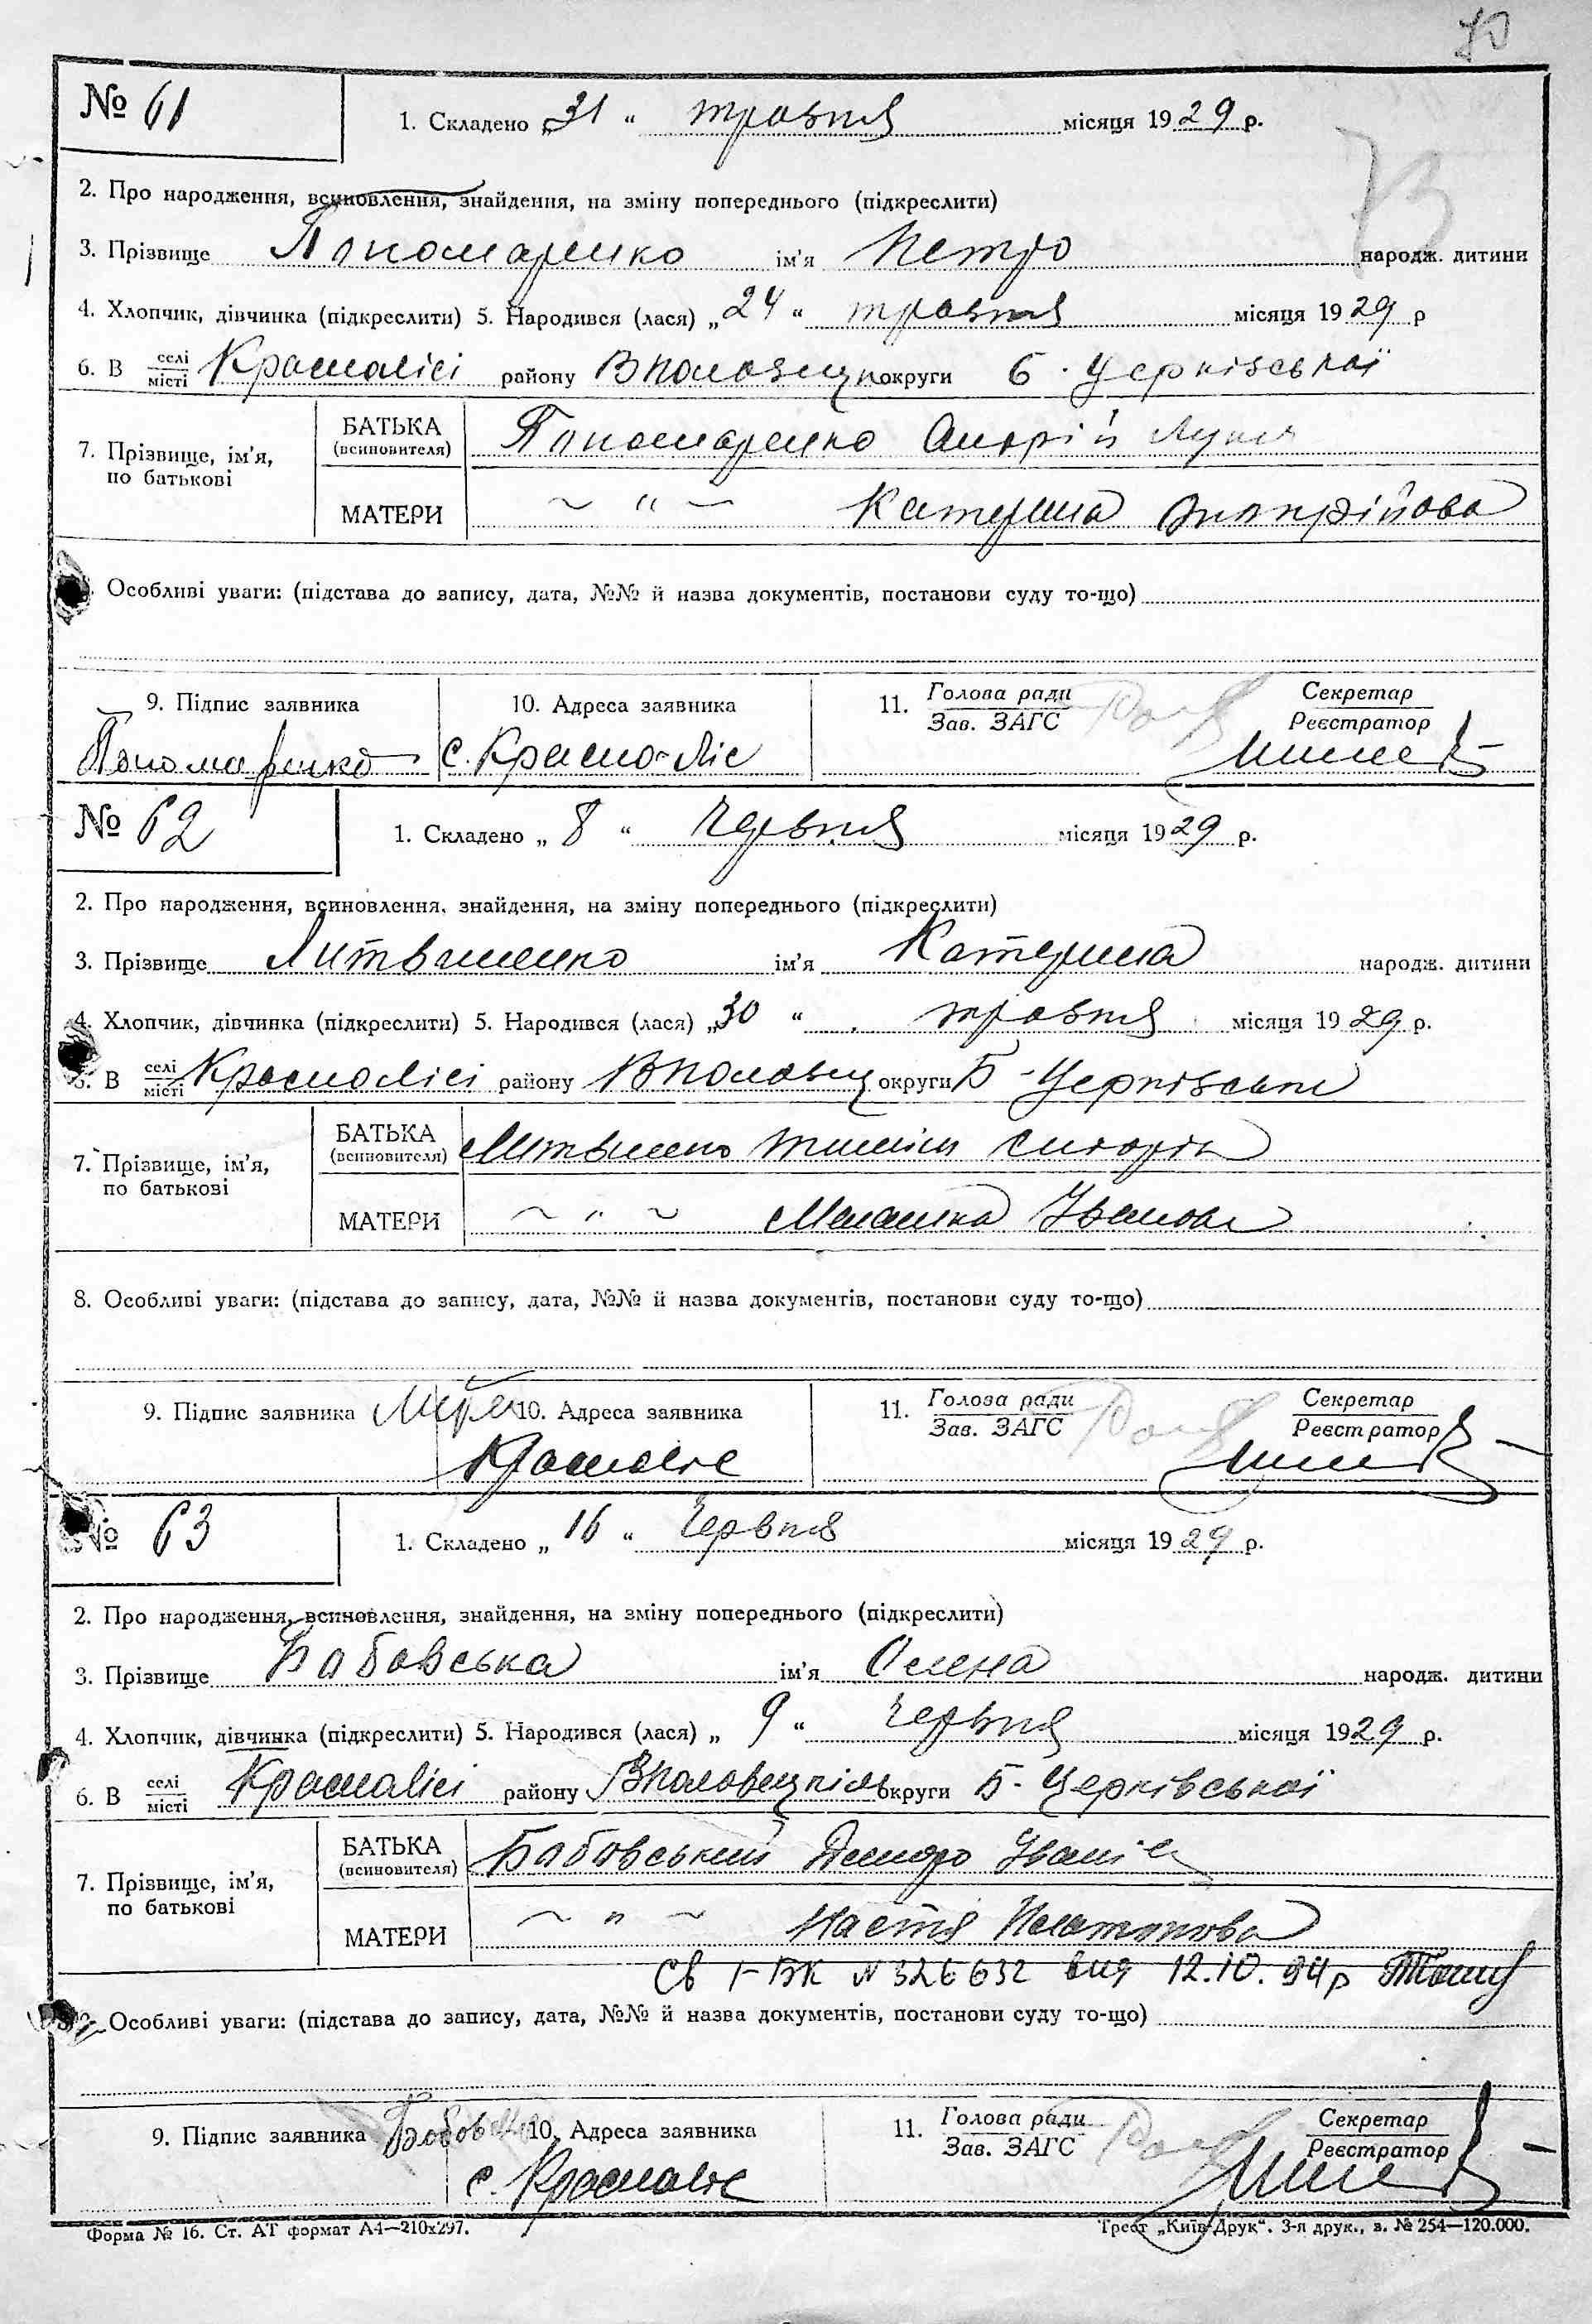 № 61
1. Складено „31“ травня місяця 1929 р.
2. Про народження, всиновлення, знайдення, на зміну попереднього (підкреслити)
3. Прізвище Пономаренко ім'я Петро народж. дитини
4. Хлопчик, дівчинка (підкреслити) 5. Народився (лася) „24“ травня місяця 1929 р
6. В селі місті Краснолісі району округи Б. Церківської
7. Прізвище, ім'я, по батькові
БАТЬКА (всиновителя) Пономаренко Андрій
МАТЕРИ ~ " ~ Катерина
Особливі уваги: (підстава до запису, дата, №№ й назва документів, постанови суду то-що)
9. Підпис заявника 10. Адреса заявника 11. Голова ради Зав. ЗАГС Секретар Реєстратор
Пономаренко с. Красно-Ліс
№ 62
1. Складено „8“ Червня місяця 1929 р.
2. Про народження, всиновлення, знайдення, на зміну попереднього (підкреслити)
3. Прізвище Литвиненко ім'я Катерина народж. дитини
4. Хлопчик, дівчинка (підкреслити) 5. Народився (лася) „30“ травня місяця 1929 р.
6. В селі місті Краснолісі району округи Б-Церківськ
7. Прізвище, ім'я, по батькові
БАТЬКА (всиновителя)
МАТЕРИ ~ " ~ Меланка Іванова
8. Особливі уваги: (підстава до запису, дата, №№ й назва документів, постанови суду то-що)
9. Підпис заявника 10. Адреса заявника 11. Голова ради Зав. ЗАГС Секретар Реєстратор
№ 63
1. Складено „16“ Червня місяця 1929 р.
2. Про народження, всиновлення, знайдення, на зміну попереднього (підкреслити)
3. Прізвище Бабовська ім'я Олена народж. дитини
4. Хлопчик, дівчинка (підкреслити) 5. Народився (лася) „9“ Червня місяця 1929 р.
6. В селі місті Краснолісі району округи Б-Церківської
7. Прізвище, ім'я, по батькові
БАТЬКА (всиновителя) Бабовський
МАТЕРИ ~ " ~ Настя
Св I-БК № 326632 вид 12.10.94р
Особливі уваги: (підстава до запису, дата, №№ й назва документів, постанови суду то-що)
9. Підпис заявника 10. Адреса заявника 11. Голова ради Зав. ЗАГС Секретар Реєстратор
Форма № 16. Ст. АТ формат А4—210x297. Трест „Київ-Друк“. 3-я друк., з. № 254—120.000.